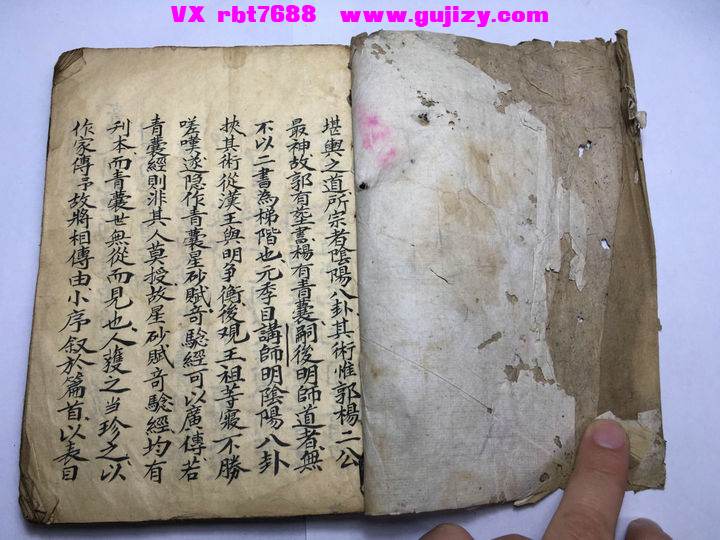 VX rbt7688 www.gujizy.com
堪輿之道所宗者陰陽八卦其術惟郭楊二公
最神故郭有葬書楊有青囊嗣後明師道者無
不以二書為梯階也元季目講師明陰陽八卦
挾其術從漢王與明爭衡後观王祖等寢不勝
嗟嘆遂隐作青囊星砂賦竒騐經可以廣傳若
青囊經則非其人莫授故星砂賦竒騐經均有
刋本而青囊世無從而見也人獲之当珍之以
作家傳予故將相傳由小序叙於篇首以表目